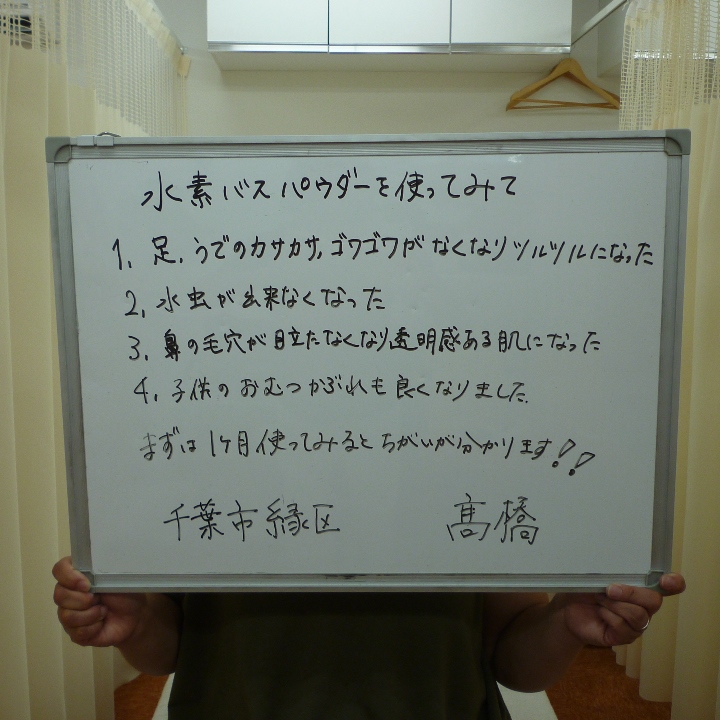 水素バスパウダーを使ってみて
1. 足、うでのカサカサ、ゴワゴワがなくなりツルツルになった
2. 水虫が出来なくなった
3. 鼻の毛穴が目立たなくなり透明感ある肌になった
4. 子供のおむつかぶれも良くなりました。
まずは1ヶ月使ってみるとちがいが分かります!!
千葉市緑区 髙橋